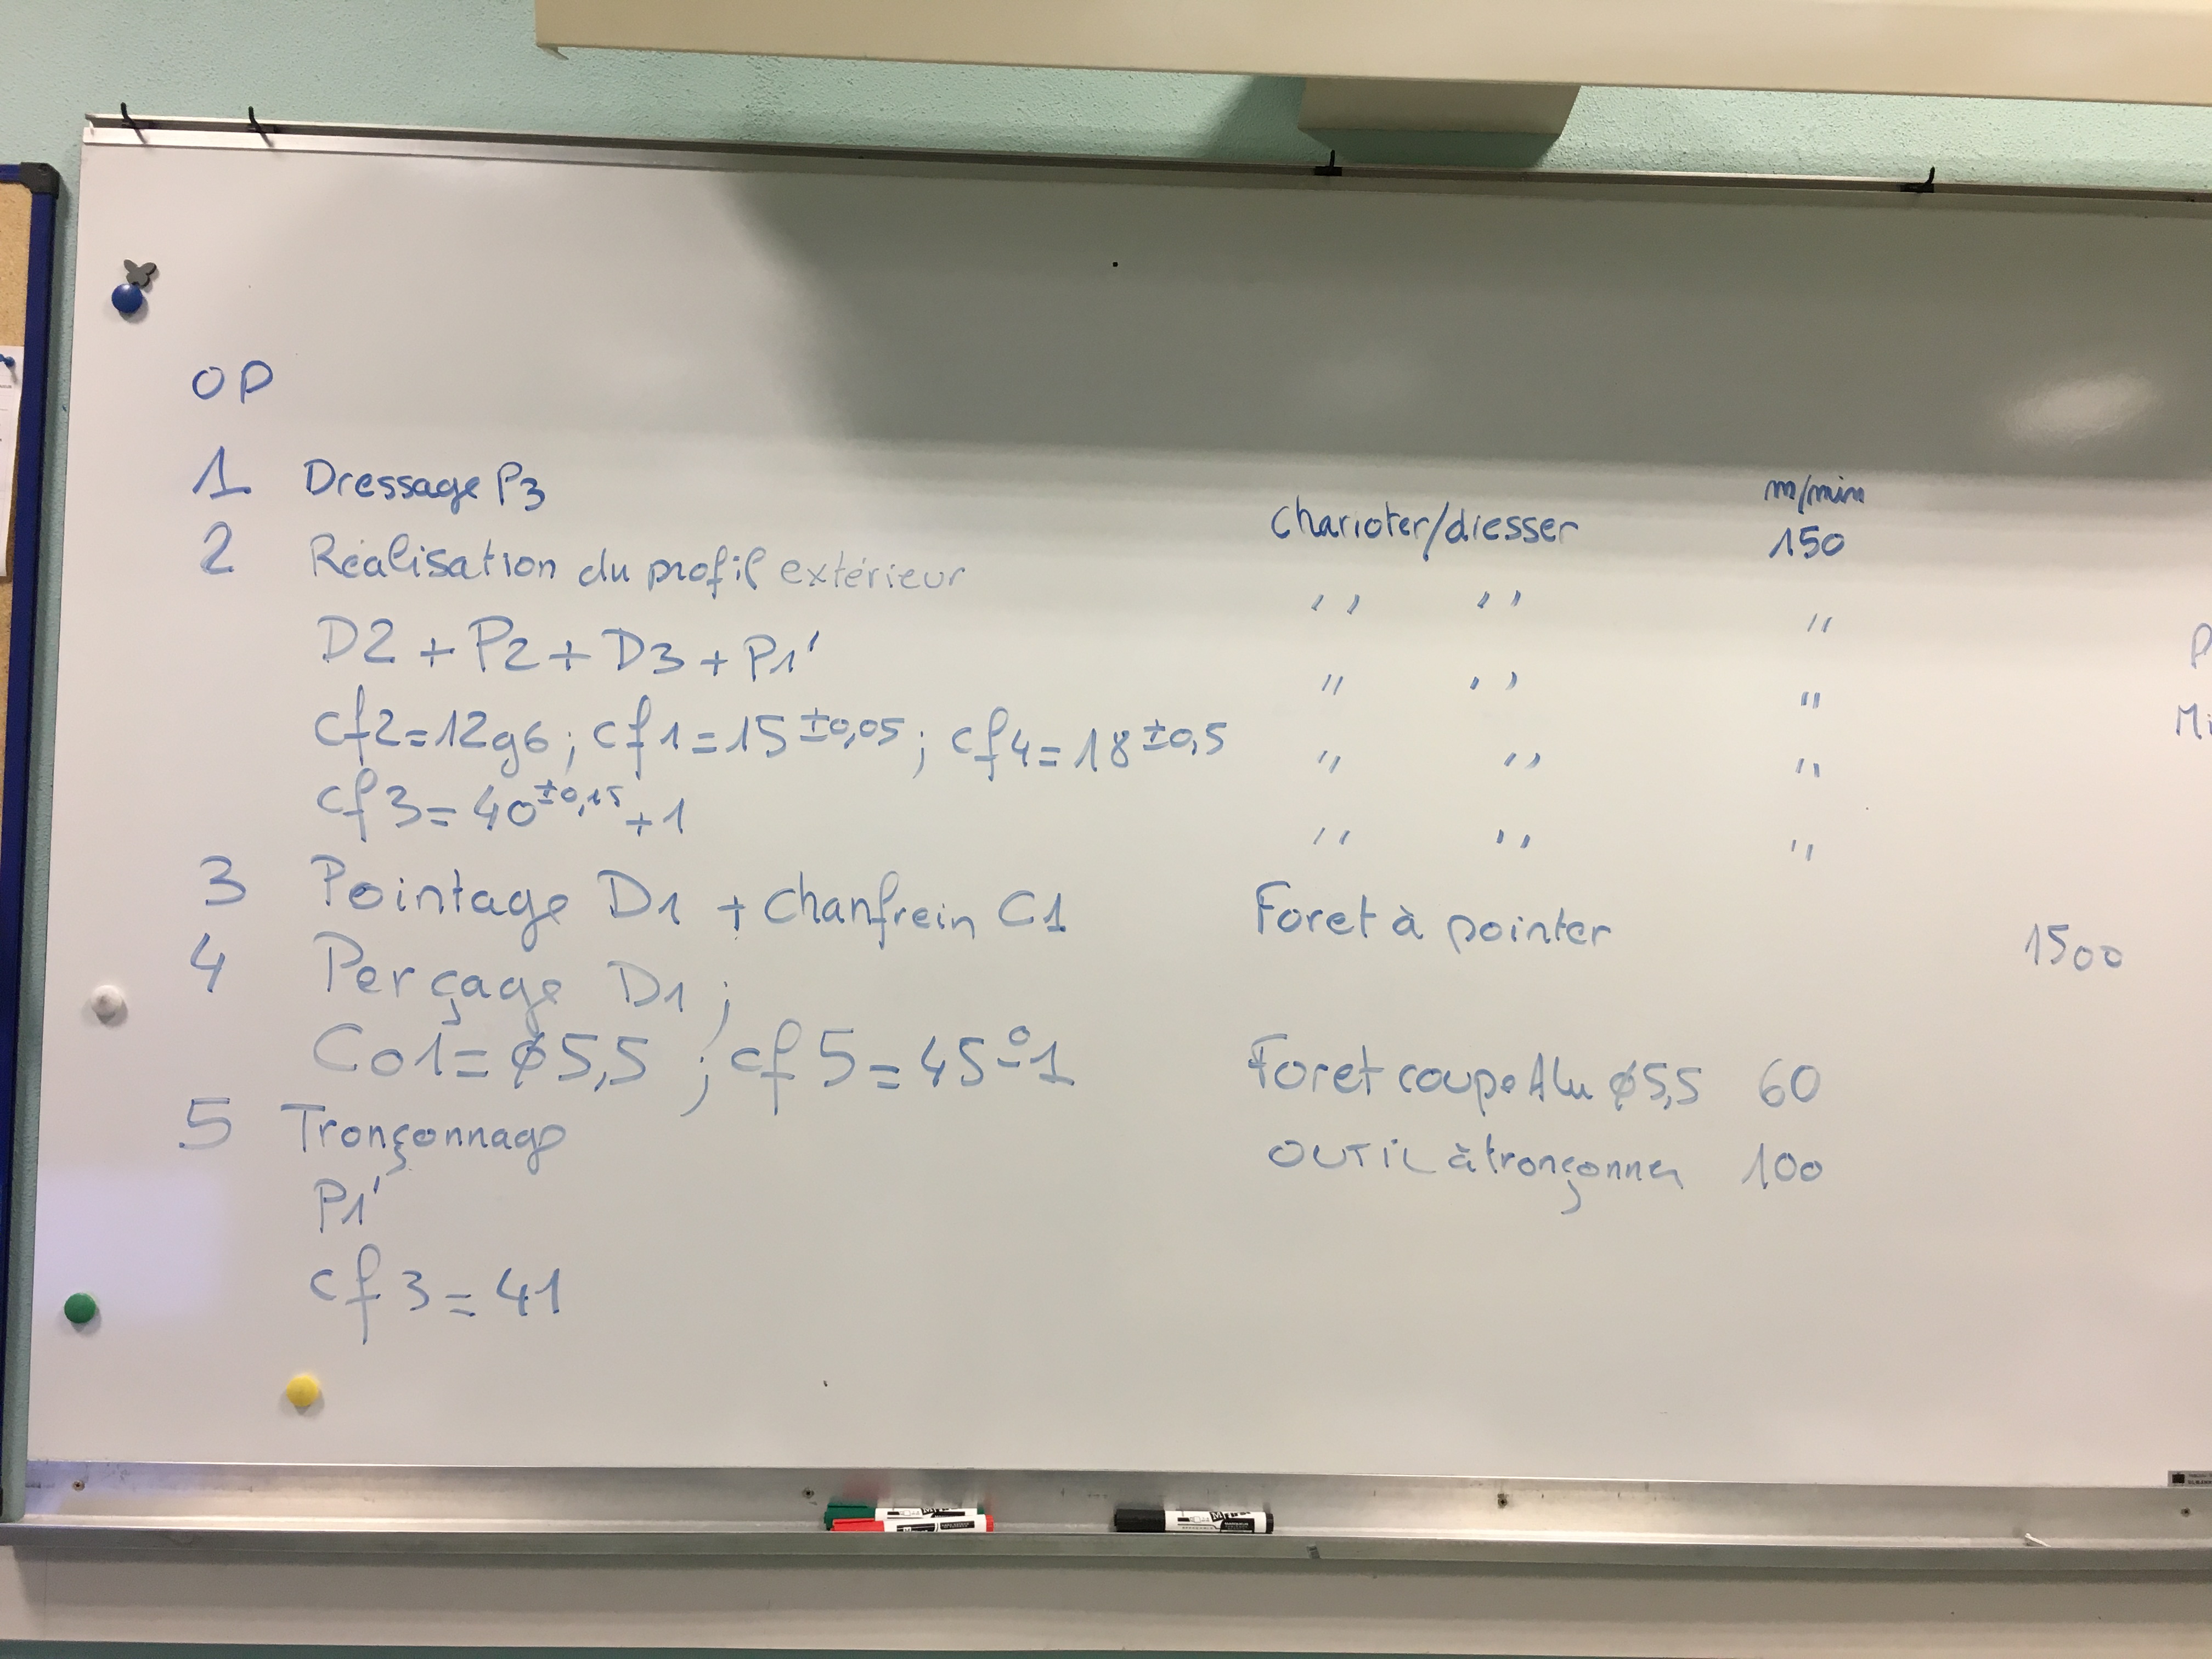 OP
m/min
1 Dressage P3 Charioter/diesser 150
2 Réalisation du profil extérieur " " "
D2 + P2 + D3 + P1' " " "
P
cf2=12g6; cf1=15±0,05; cf4=18±0,5 " " "
Mi
cf3=40±0,15+1 " " "
3 Pointage D1 + Chanfrein C1 Foret à pointer 1500
4 Perçage D1;
Co1=ø5,5 ; cf5=45 0-1 Foret coupe Alu ø5,5 60
5 Tronçonnage OUTIL à tronçonner 100
P1'
cf3=41